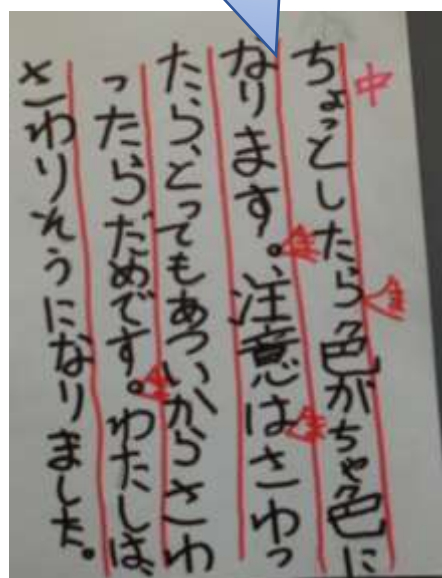 中
ちょっとしたら色がちゃ色に
なります。注意はさわっ
たら、とってもあついからさわ
ったらだめです。わたしは、
さわりそうになりました。